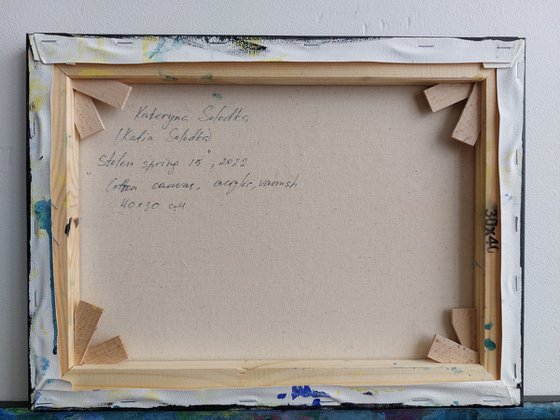 Kateryna Solodka
(Katia Solodka)
"Stolen spring 15", 2022
Cotton canvas, acrylic, varnish
40x30 см
30x40